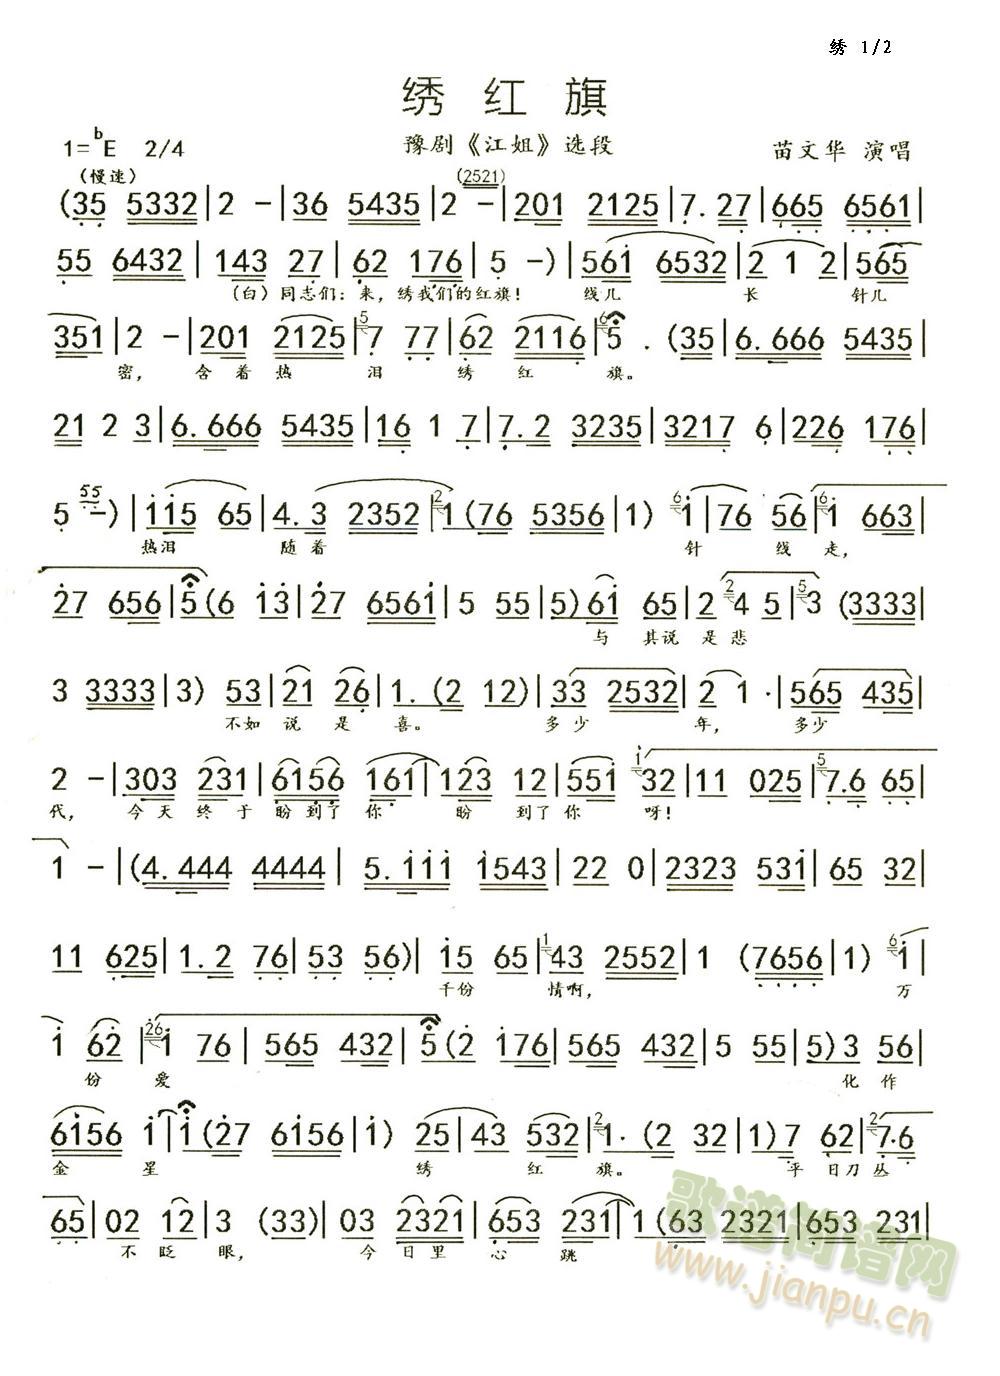 绣 1/2
绣 红 旗
1=ᵇE 2/4 豫剧《江姐》选段 苗文华 演唱
(慢速) (2521)
(35 5332|2 -|36 5435|2 -|201 2125|7. 27|665 6561|
55 6432|143 27|62 176|5 -)|561 6532|2 1 2|565
(白)同志们:来,绣我们的红旗! 线儿 长 针儿
351|2 -|201 2125|⁵7 77|62 2116|⁶5 . (35|6.666 5435|
密, 含着热 泪 绣红 旗。
21 2 3|6.666 5435|16 1 7|7.2 3235|3217 6|226 176|
5 ⁵⁵-)|115 65|4.3 2352|²1(76 5356|1) ⁶1|76 56|⁶1 663|
热泪 随着 针 线 走,
27 656|5(6 13|27 6561|5 55|5) 61 65|2 ²4 5|⁵3 (3333|
与 其说 是悲
3 3333|3) 53|21 26|1. (2 12)|33 2532|2 1 .|565 435|
不如 说 是 喜。 多少 年, 多少
2 -|303 231|6156 161|123 12|551 ¹32|11 025|⁵7.6 65|
代, 今天终于盼到了你 盼 到了你 呀!
1 -|(4.444 4444|5.111 1543|22 0|2323 531|65 32|
11 625|1.2 76|53 56)|15 65|¹43 2552|1 (7656|1) ⁶1|
千份 情啊, 万
1 62|²⁶1 76|565 432|5(2 176|565 432|5 55|5) 3 56|
份 爱 化 作
6156 1|1(27 6156|1) 25|43 532|²1. (2 32|1) 7 62|²7.6
金 星 绣 红 旗。 平日刀丛
65|02 12|3 (33)|03 2321|653 231|1 (63 2321|653 231|
不眨 眼, 今日里 心 跳
歌谱简谱网
www.jianpu.cn